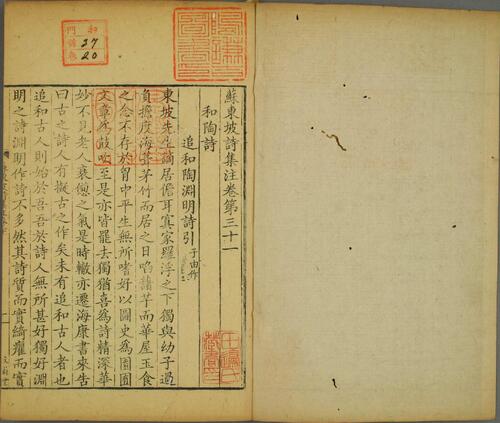 蘇東坡詩集注卷第三十一
和陶詩
追和陶淵明詩引 子由作
東坡先生謫居儋耳寘家羅浮之下獨與幼子過
負擔度海葺茅竹而居之日啗藷芋而華屋玉食
之念不存於胷中平生無所嗜好以圖史為園囿
文章為鼓吹至是亦皆罷去獨猶喜為詩精深華
妙不見老人衰憊之氣是時轍亦遷海康書來告
曰古之詩人有擬古之作矣未有追和古人者也
追和古人則始於吾吾於詩人無所甚好獨好淵
明之詩淵明作詩不多然其詩質而實綺癯而實
和
門
37
20
一